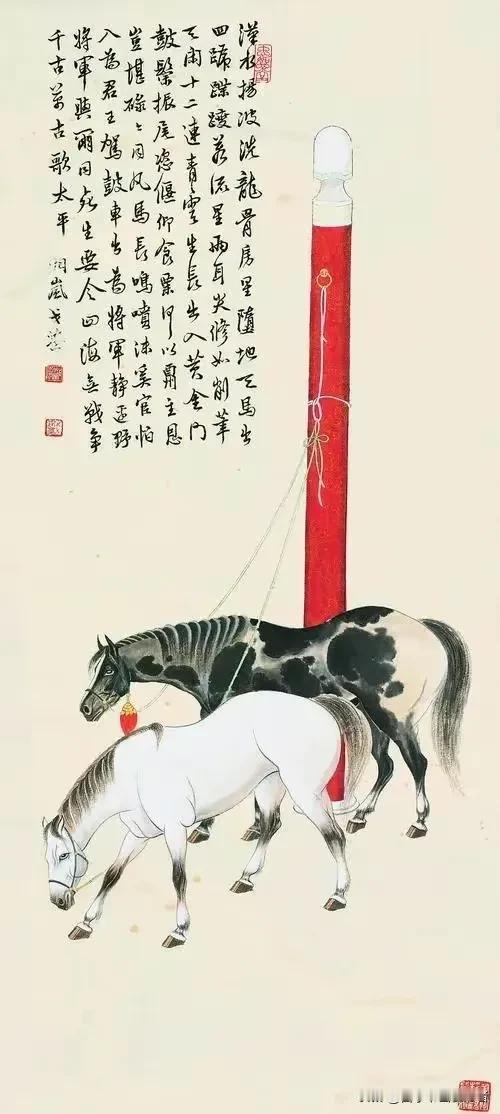 漢水揚波洗龍骨房星墮地天馬出
四蹄蹀躞若流星兩耳尖修如削筆
天閑十二連青雲生長出入黃金門
鼓鬃振尾恣偃仰食粟何以酬主恩
豈堪碌々同凡馬長鳴噴沫奚官怕
入為君王駕鼓車出為將軍靜邊野
將軍與爾同死生要令四海無戰爭
千古萬古歌太平
湘嵐戈荃